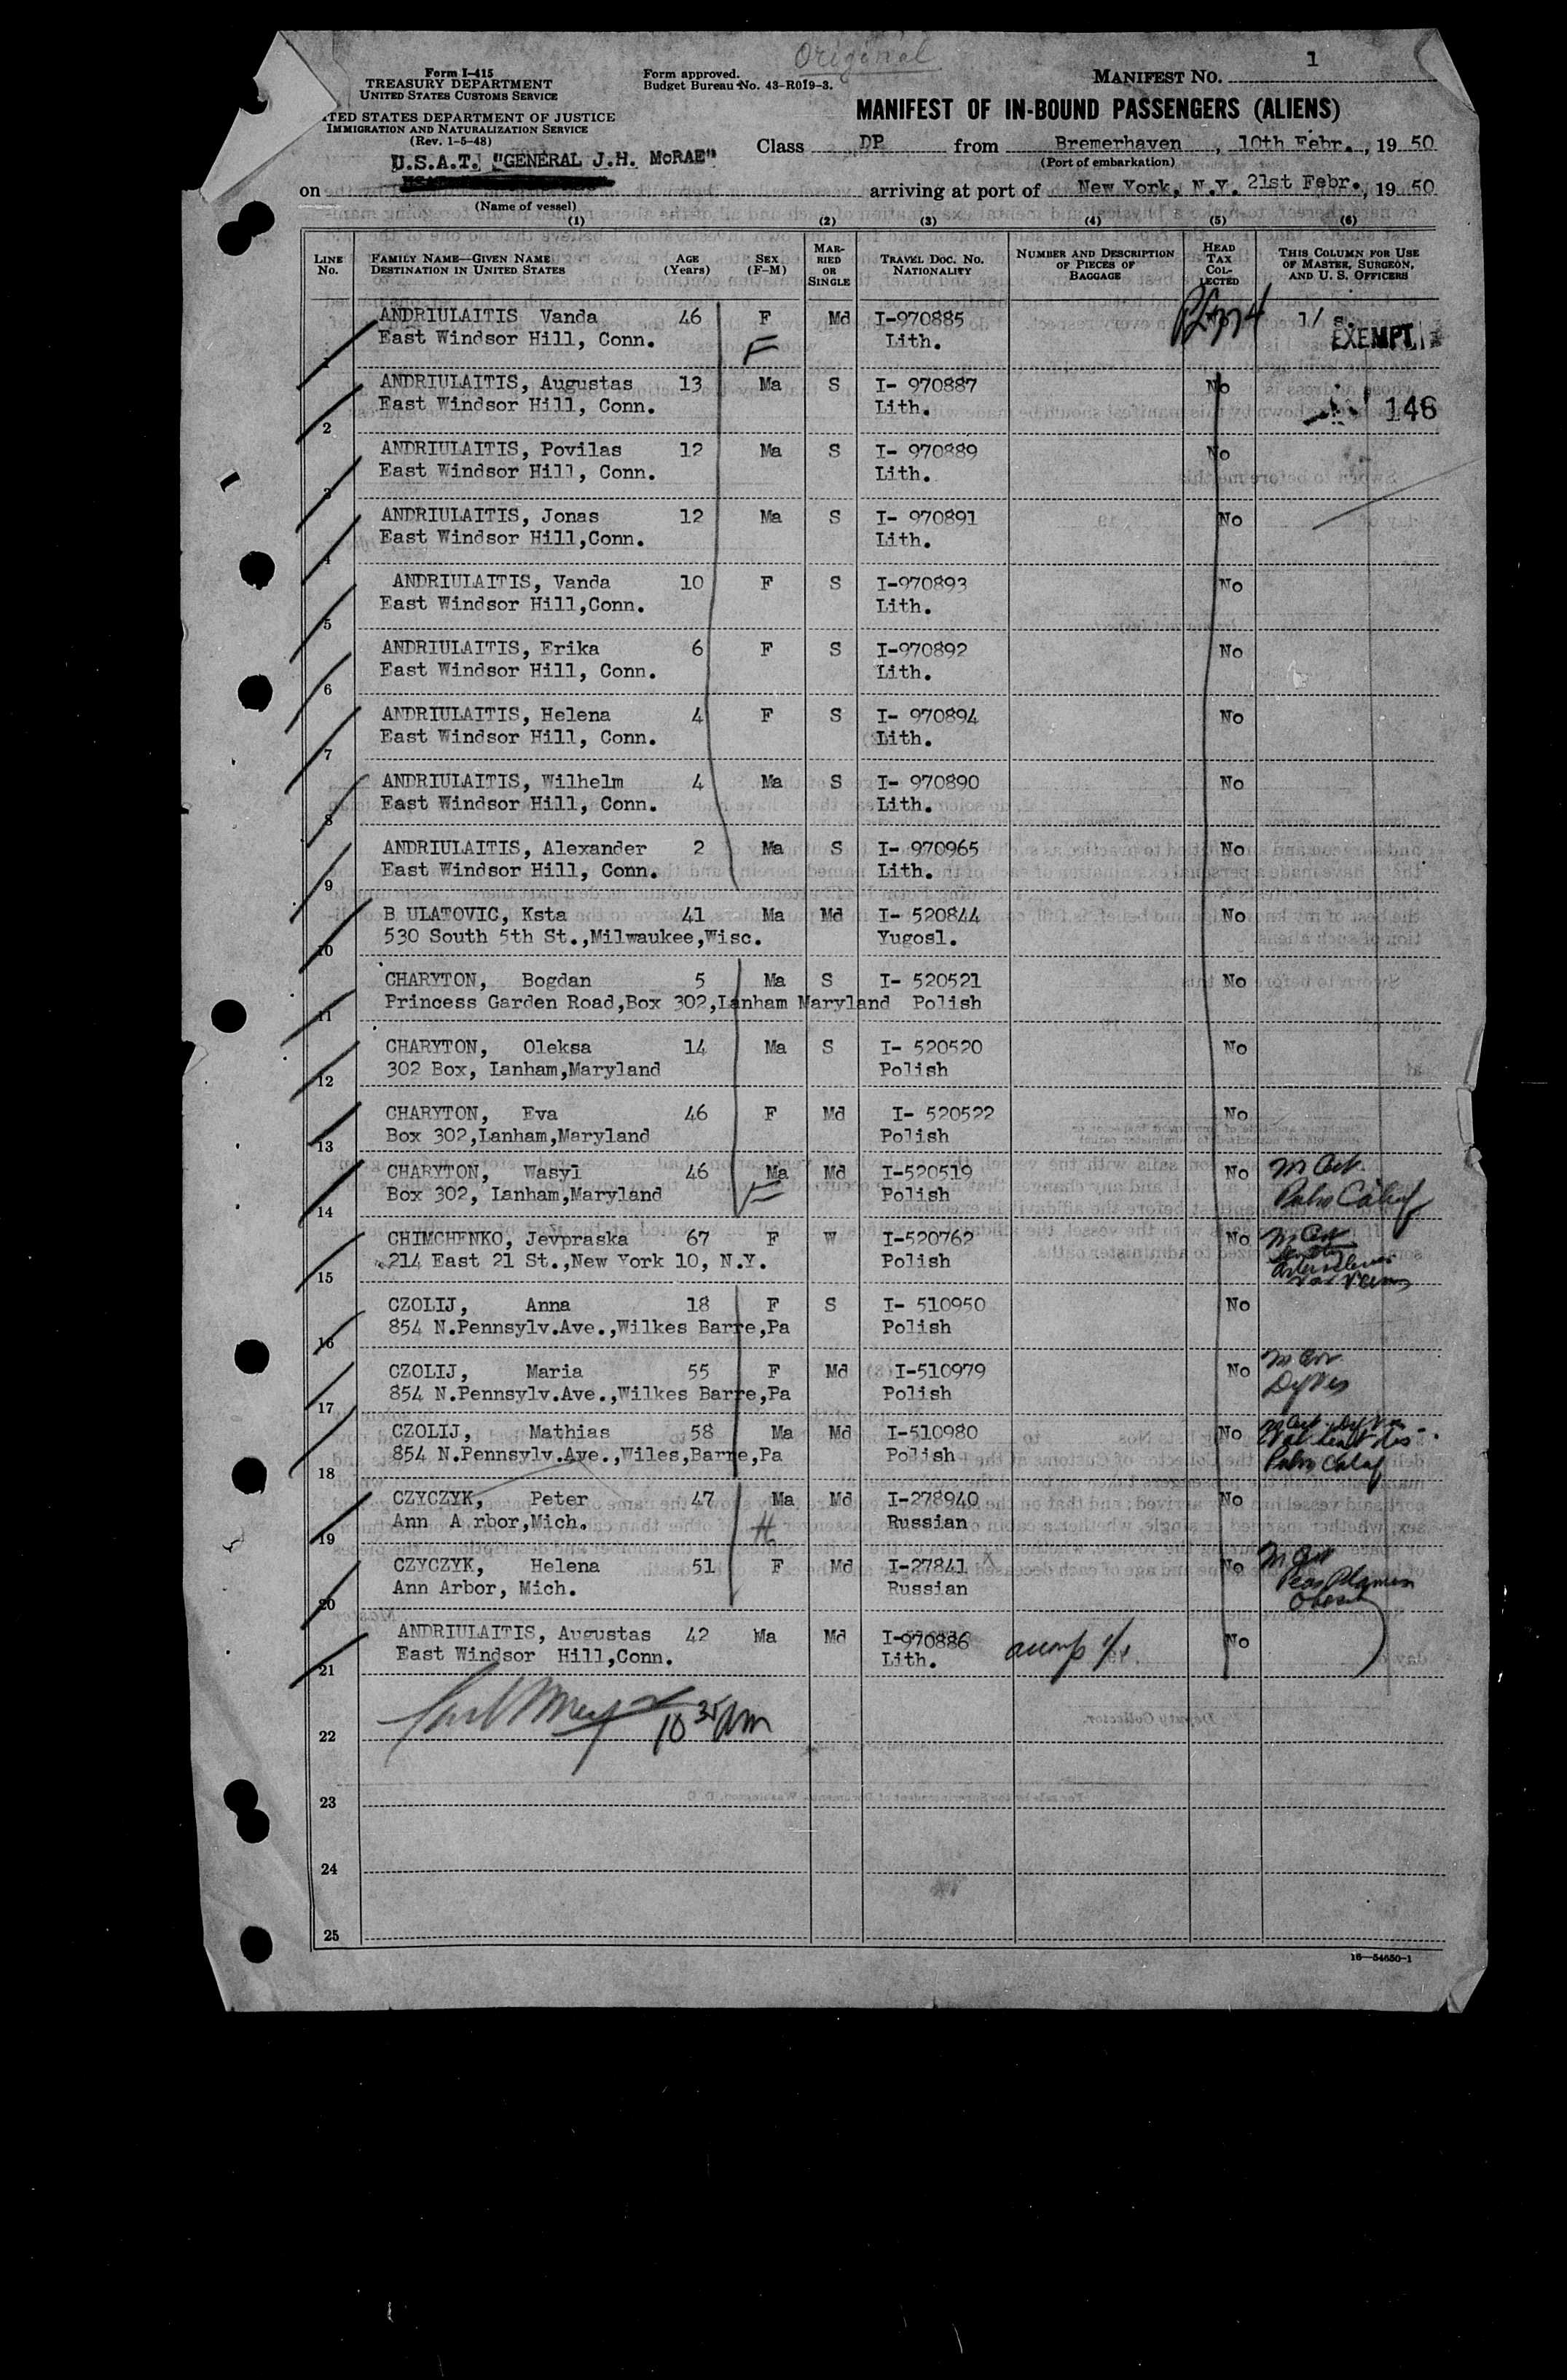 Original
Form I-415
TREASURY DEPARTMENT
UNITED STATES CUSTOMS SERVICE
Form approved.
Budget Bureau No. 43-R019-3.
MANIFEST NO. 1
ITED STATES DEPARTMENT OF JUSTICE
IMMIGRATION AND NATURALIZATION SERVICE
(Rev. 1-5-48)
MANIFEST OF IN-BOUND PASSENGERS (ALIENS)
Class DP from Bremerhaven, 10th Febr., 1950
(Port of embarkation)
U.S.A.T. "GENERAL J.H. McRAE"
on arriving at port of New York, N.Y. 21st Febr., 1950
(Name of vessel)
(1) (2) (3) (4) (5) (6)
LINE NO. FAMILY NAME—GIVEN NAME DESTINATION IN UNITED STATES AGE (Years) SEX (F-M) MARRIED OR SINGLE TRAVEL DOC. NO. NATIONALITY NUMBER AND DESCRIPTION OF PIECES OF BAGGAGE HEAD TAX COLLECTED THIS COLUMN FOR USE OF MASTER, SURGEON, AND U. S. OFFICERS
ANDRIULAITIS Vanda 46 F Md I-970885 1/ s.
1 East Windsor Hill, Conn. F Lith. EXEMPT
ANDRIULAITIS, Augustas 13 Ma S I- 970887 No
2 East Windsor Hill, Conn. Lith. 146
ANDRIULAITIS, Povilas 12 Ma S I- 970889 No
3 East Windsor Hill, Conn. Lith.
ANDRIULAITIS, Jonas 12 Ma S I- 970891 No
4 East Windsor Hill,Conn. Lith.
ANDRIULAITIS, Vanda 10 F S I-970893 No
5 East Windsor Hill,Conn. Lith.
ANDRIULAITIS, Erika 6 F S I-970892 No
6 East Windsor Hill, Conn. Lith.
ANDRIULAITIS, Helena 4 F S I- 970894 No
7 East Windsor Hill, Conn. Lith.
ANDRIULAITIS, Wilhelm 4 Ma S I- 970890 No
8 East Windsor Hill, Conn. Lith.
ANDRIULAITIS, Alexander 2 Ma S I- 970965 No
9 East Windsor Hill, Conn. Lith.
B ULATOVIC, Ksta 41 Ma Md I- 520844 No
10 530 South 5th St.,Milwaukee,Wisc. Yugosl.
CHARYTON, Bogdan 5 Ma S I- 520521 No
11 Princess Garden Road,Box 302,Lanham Maryland Polish
CHARYTON, Oleksa 14 Ma S I- 520520 No
12 302 Box, Lanham,Maryland Polish
CHARYTON, Eva 46 F Md I- 520522 No
13 Box 302,Lanham,Maryland Polish
CHARYTON, Wasyl 46 Ma Md I-520519 No
14 Box 302, Lanham,Maryland Polish
CHIMCHENKO, Jevpraska 67 F W I-520762 No
15 214 East 21 St.,New York 10, N.Y. Polish
CZOLIJ, Anna 18 F S I- 510950 No
16 854 N.Pennsylv.Ave.,Wilkes Barre,Pa Polish
CZOLIJ, Maria 55 F Md I-510979 No
17 854 N.Pennsylv.Ave.,Wilkes Barre,Pa Polish
CZOLIJ, Mathias 58 Ma Md I-510980 No
18 854 N.Pennsylv.Ave.,Wiles,Barre,Pa Polish
CZYCZYK, Peter 47 Ma Md I-278940 No
19 Ann A rbor,Mich. H Russian
CZYCZYK, Helena 51 F Md I-27841 x No
20 Ann Arbor, Mich. Russian
ANDRIULAITIS, Augustas 42 Ma Md I-970886 No
21 East Windsor Hill,Conn. Lith. accomp 1/1
22 10 35 AM
23
24
25
16—54650-1